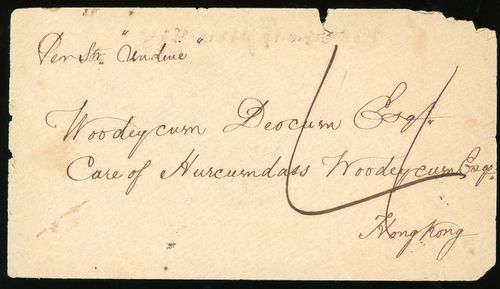 Per Str. "Undine"
Woodeycum Deocurn Esqr.
Care of Hurcumdass Woodeycum Esqr.
Hong Kong